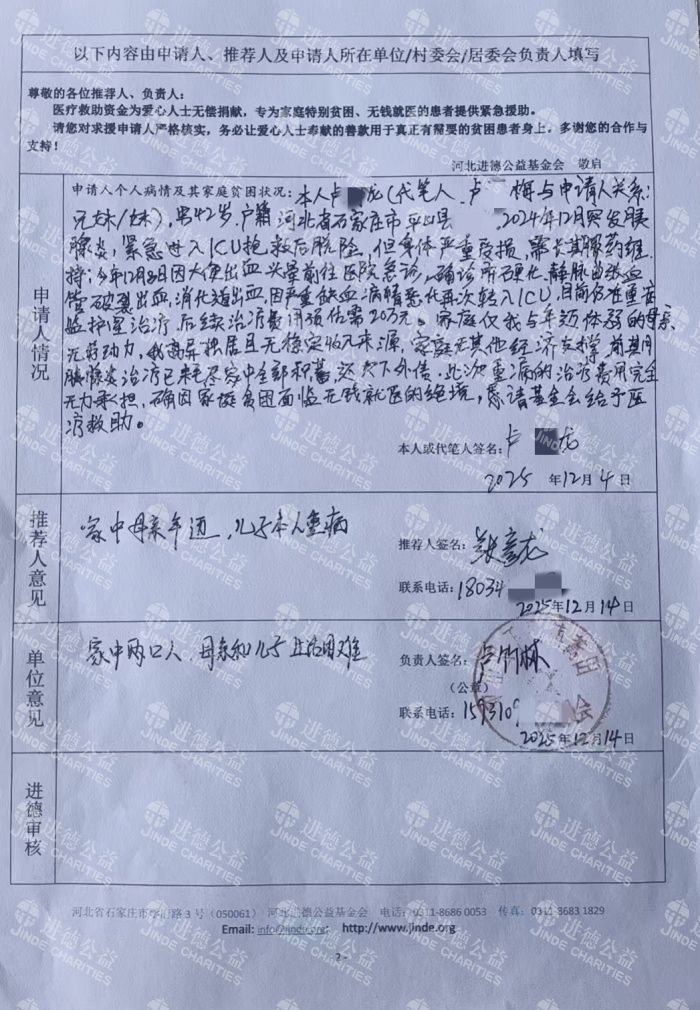 以下内容由申请人、推荐人及申请人所在单位/村委会/居委会负责人填写
尊敬的各位推荐人、负责人：
医疗救助资金为爱心人士无偿捐献，专为家庭特别贫困、无钱就医的患者提供紧急援助。
请您对求援申请人严格核实，务必让爱心人士奉献的善款用于真正有需要的贫困患者身上，多谢您的合作与
支持！
河北进德公益基金会 敬启
申请人情况
申请人个人病情及其家庭贫困状况：本人卢 龙(代笔人 卢 梅与申请人关系:
兄妹/妹），男42岁，户籍河北省石家庄市平山县 ,2024年12月突发胰
腺炎，紧急进入ICU抢救后脱险，但身体严重受损，需长期服药维
持；今年12月3日因大便出血头晕前往医院急诊，确诊肝硬化、静脉曲张血
管破裂出血,消化道出血,因严重缺血病情恶化再次转入ICU,目前仍在重症
监护室治疗，后续治疗费用预估需20万元。家庭仅我与年迈体弱的母亲,
无劳动力，我离异独居且无稳定收入来源，家庭无其他经济支撑，前期因
胰腺炎治疗已耗尽家中全部积蓄,还欠下外债，此次重病的治疗费用完全
无力承担，确因家庭贫困面临无钱就医的绝境，恳请基金会给予医
疗救助。
本人或代笔人签名：卢 龙
2025 年12月4日
推荐人意见
家中母亲年迈，儿子本人重病
推荐人签名：
联系电话：18034
2025年12月14日
单位意见
家中两口人，母亲和儿子生活困难
负责人签名：卢竹林
（公章）
联系电话：159310
会
2025年12月14日
进德审核
河北省石家庄市学府路3号（050061） 河北进德公益基金会 电话：0311-8686 0053 传真：0311-8683 1829
Email: info@jinde.org; http://www.jinde.org
- 2 -
进德公益
JINDE CHARITIES